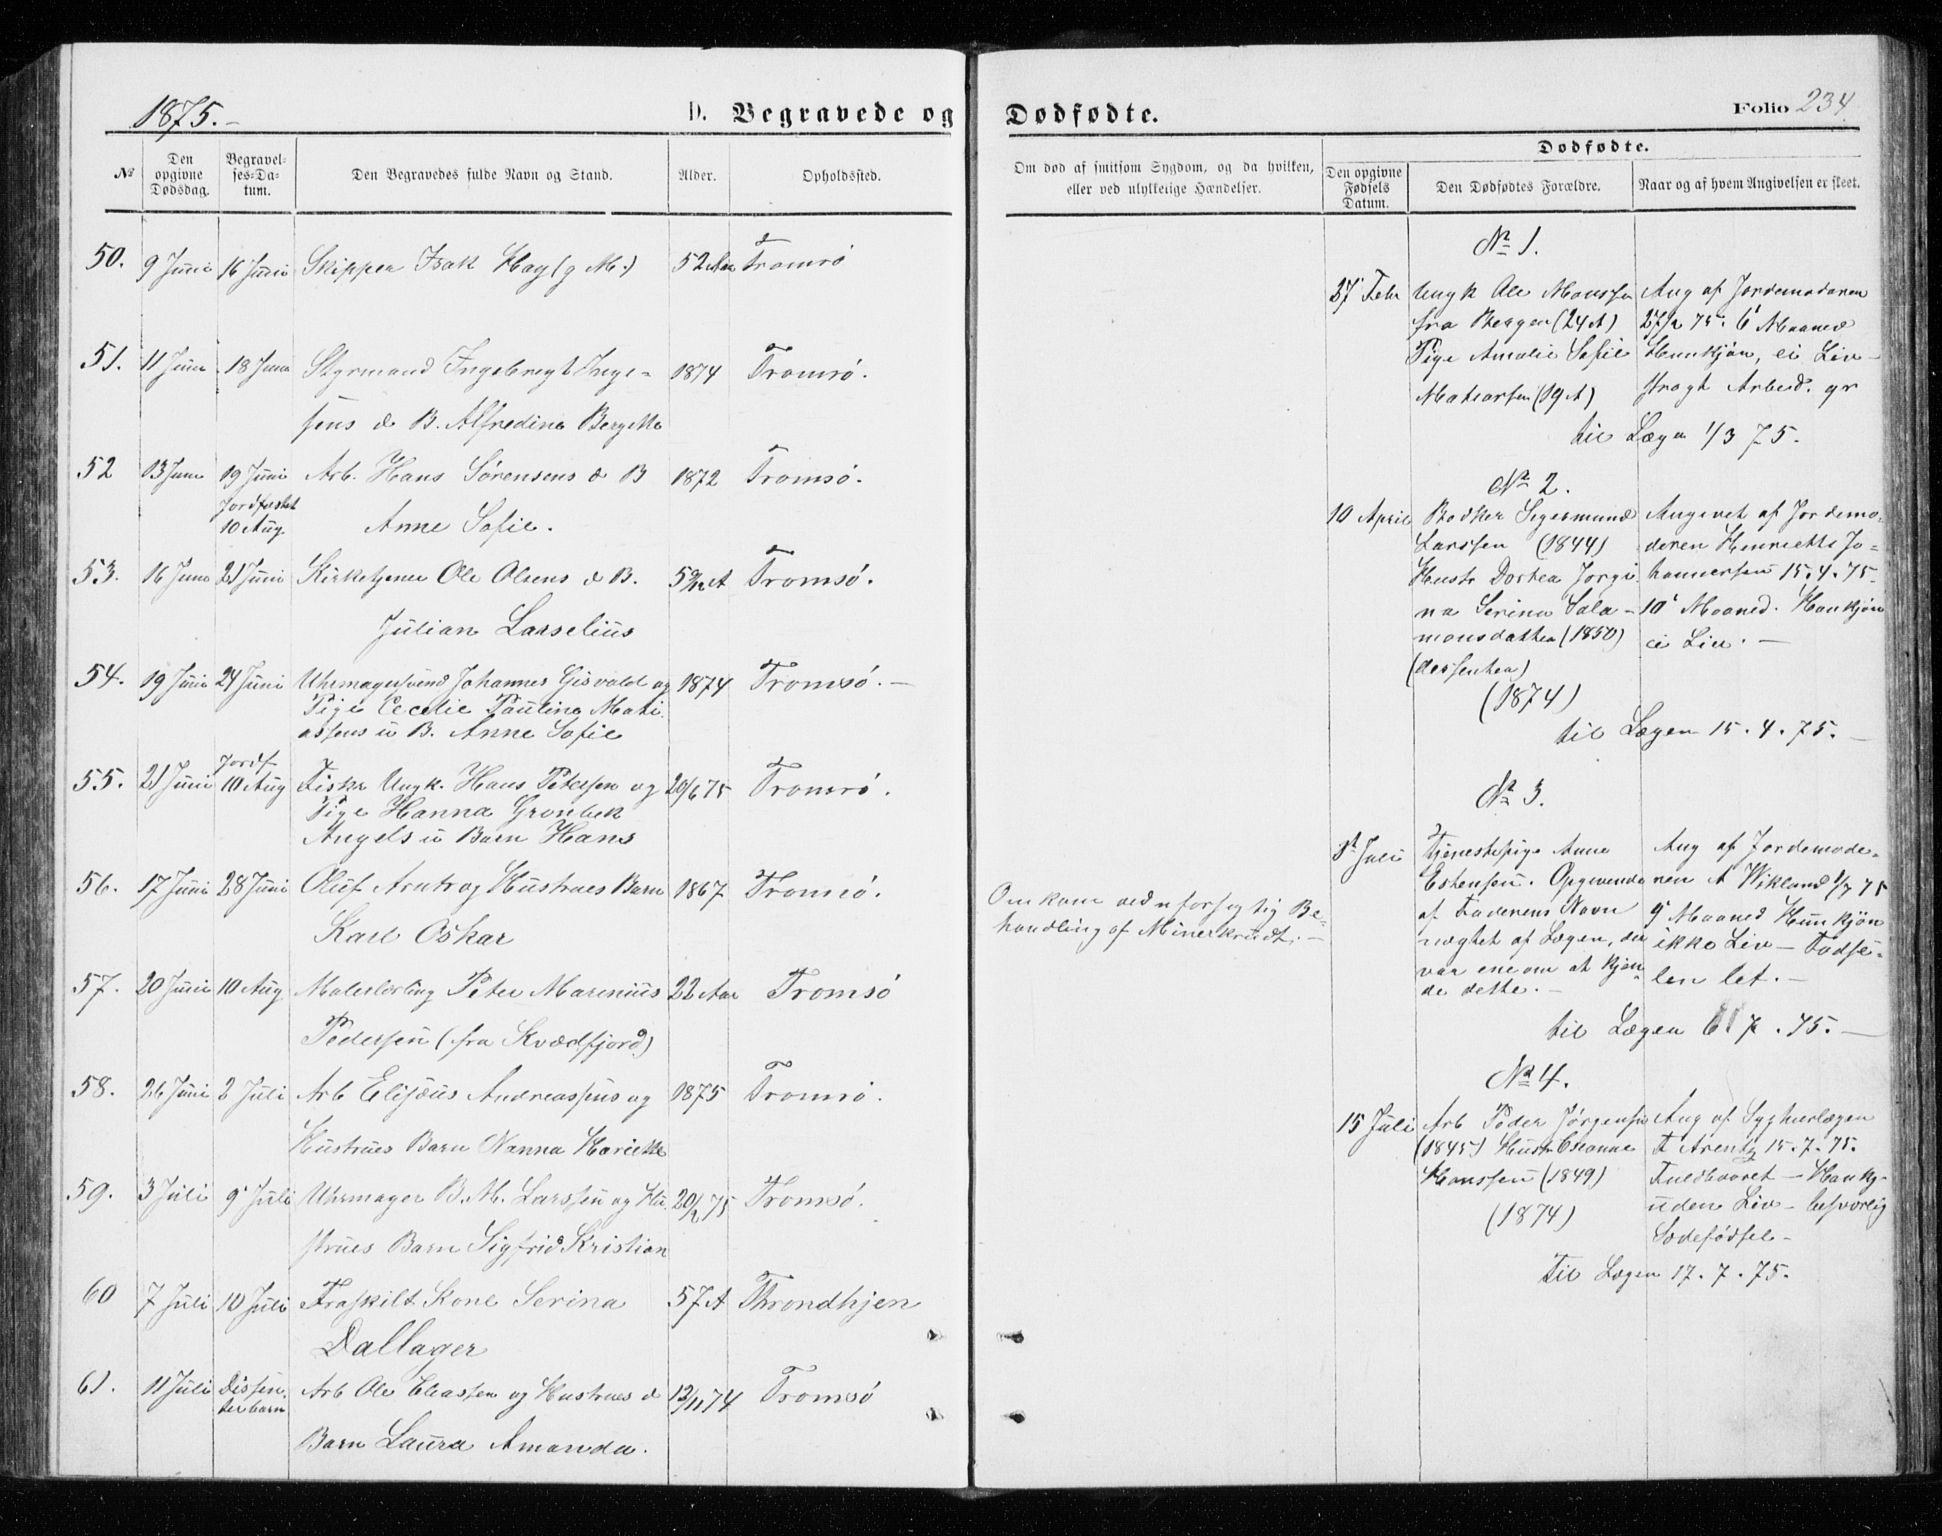 1875.-
D. Begravede og
№
Den opgivne Dødsdag.
Begravel-
ses-Da-
tum.
Den Begravedes fulde Navn og Stand.
Alder.
Opholdssted.
50. 9 Juni 16 Juni Skipper Isak Hay (g M.) 52 Aar Tromsø
51. 11 Juni 18 Juni Styrmand Ingebregt Inge- 1874 Tromsø.
sens d B. Alfredine Bergette
52 13 Juni 19 Juni Arb. Hans Sørensens d B 1872 Tromsø.
Jordfæstet
10 Aug. Anne Sofie.
53. 16 Juni 21 Juni Kirketjener Ole Olsens d B. Tromsø.
Julian Lasselius
54. 19 Juni 24 Juni Uhrmagersvend Johannes Gisvold og 1874 Tromsø.-
Pige Cecelie Pauline Mati
assens u B. Anne Sofie
Jordf
55. 21 Juni 10 Aug Fisker Ungk. Hans Petersen og 20/6 75 Tromsø.
Pige Hanna Grønbek
Angels u Barn Hans
56. 17 Juni 28 Juni Oluf Arntz og Hustrues Barn 1867 Tromsø.
Karl Oskar
57. 20 Juni 10 Aug Malerlærling Peter Marinius 22 Aar Tromsø
Pedersen (fra Kvædfjord)
58. 26 Juni 2 Juli Arb Elisæus Andreassens og 1875 Tromsø.
Hustrues Barn Nanna Hariette
59. 3 Juli 9 Juli Uhrmager B. M. Larssen og Hu 20/2 75 Tromsø.
strues Barn Sigfrid Kristian
60 7 Juli 10 Juli Fraskilt Kone Serina 57 A Throndhjem
Dallager
61. 11 Juli Dissen Arb Ole Eliassen og Hustrues d 13/11 74 Tromsø
terbarn
Barn Laura Amanda.
Dødfødte.
Folio 234
Om død af smitsom Sygdom, og da hvilken,
eller ved ulykkelige Hændelser.
Dødfødte.
Den opgivne
Fødsels
Datum.
Den Dødfødtes Forældre.
Naar og af hvem Angivelsen er skeet.
Omkom ved uforsigtig Be-
handling af Minerkrudt.-
№ 1.
27 Febr Ungk Ole Monssen Ang af Jordemoderen
fra Bergen (24 A) 27/2 75. 6 Maaned
Pige Amalie Sofie Hunkjøn, ei Liv-
Matiassen (19 A) stragt Arbeid.
til Lægen 1/3 75.
№ 2.
10 April Bødker Sigermund Angivet af Jordemo-
Larssen (1844) deren Henriette Jo-
Hustr Dortea Jorgi hannessen 15.4.75.
na Serina Sala- 10 Maaned. Hankjøn
monsdatter (1850) ei Liv.-
(dissenter)
(1874)
til Lægen 15.4.75.-
№ 3.
Juli Tjenestepige Anne Ang af Jordemode-
Estensen. Opgivende ren A Wikland 1/7 75
af Faderens Navn 9 Maaned Hunkjøn
nægtet af Lægen, der ikke Liv- Fødse-
var ene om at kjen len let.-
de dette.-
til Lægen 7.75.-
№ 4.
15 Juli Arb Peder Jørgensen Ang af Syghuslægen
(1845) Hustr Osianne F Arentz 15.7.75.
Hanssen (1849) Fuldbaaret- Hankj-
uden Liv- besværlig
(1874)
Sædefødsel-
til Lægen 17.7.75.